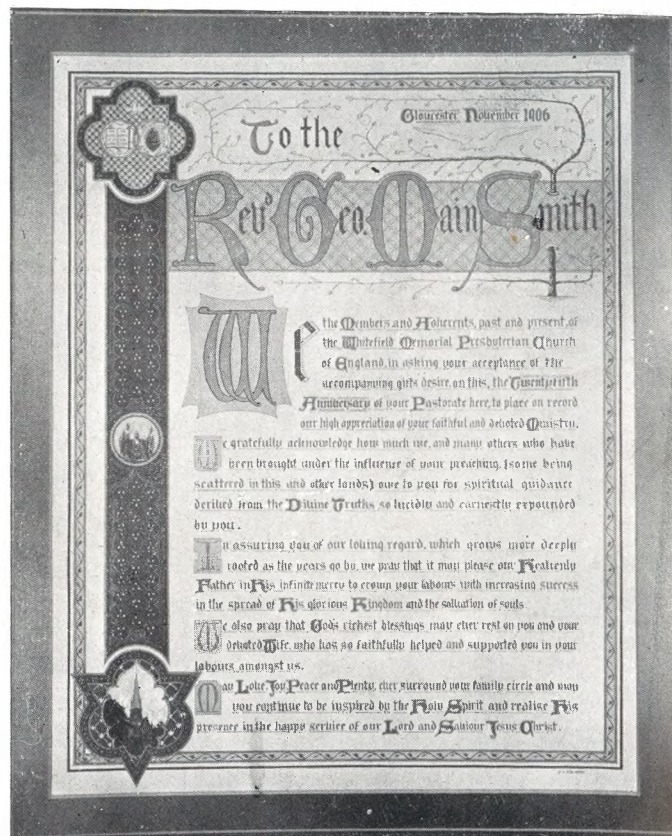 Gloucester November 1906
To the
Revd Geo. Main Smith
We the Members and Adherents, past and present, of
the Whitefield Memorial Presbyterian Church
of England, in asking your acceptance of the
accompanying gifts desire, on this, the Twentyfifth
Anniversary of your Pastorate here, to place on record
our high appreciation of your faithful and devoted Ministry.
We gratefully acknowledge how much we, and many others who have
been brought under the influence of your preaching, (some being
scattered in this and other lands) owe to you for spiritual guidance
derived from the Divine Truths so lucidly and earnestly expounded
by you.
In assuring you of our loving regard, which grows more deeply
rooted as the years go by, we pray that it may please our Heavenly
Father in His infinite mercy to crown your labours with increasing success
in the spread of His glorious Kingdom and the salvation of souls.
We also pray that Gods richest blessings may ever rest on you and your
devoted Wife, who has so faithfully helped and supported you in your
labours amongst us.
May Love, Joy, Peace and Plenty, ever surround your family circle and may
you continue to be inspired by the Holy Spirit and realise His
presence in the happy service of our Lord and Saviour Jesus Christ.